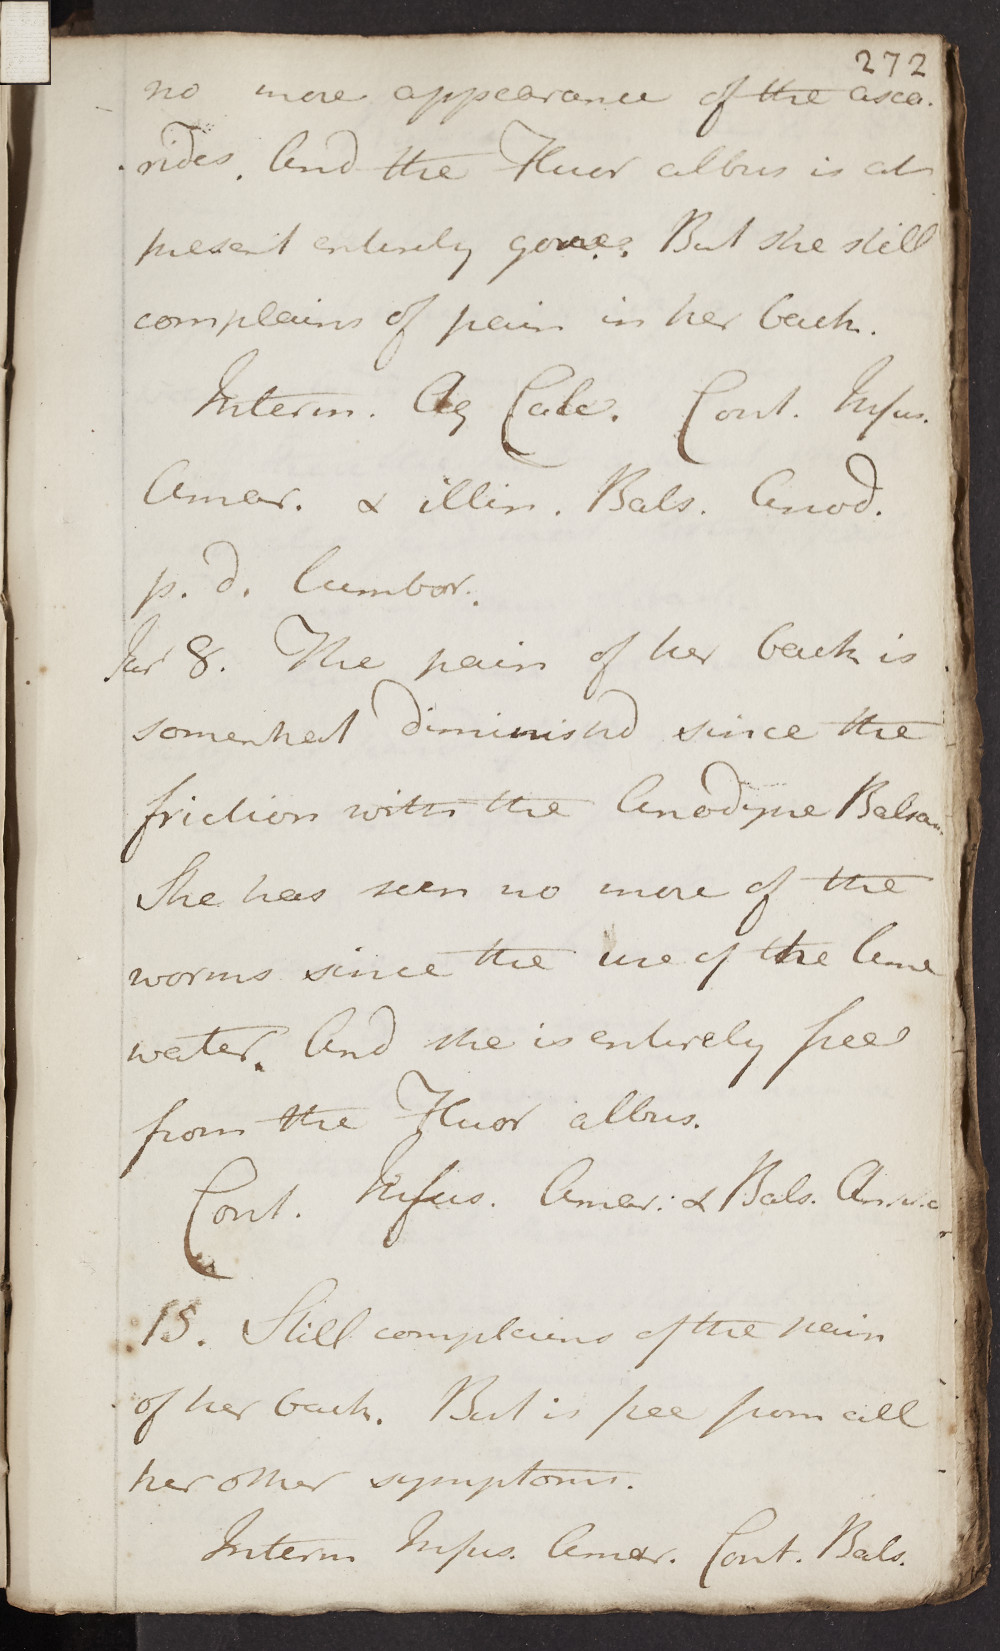 272
no more appearance of the asca-
rides. And the Fluor albus is at
present entirely gone. But she still
complains of pain in her back.
Interm. Aq Calc. Cont. Infus.
Amar. & illin. Bals. Anod.
p. d. lumbor.
Jan 8. The pain of her back is
somewhat diminishd since the
friction with the Anodyne Balsam.
She has seen no more of the
worms since the use of the lime
water. And she is entirely free
from the Fluor albus.
Cont. Infus. Amar: & Bals.
15. Still complains of the pain
of her back. But is free from all
her other symptoms.
Interm Infus. Amar. Cont. Bals.